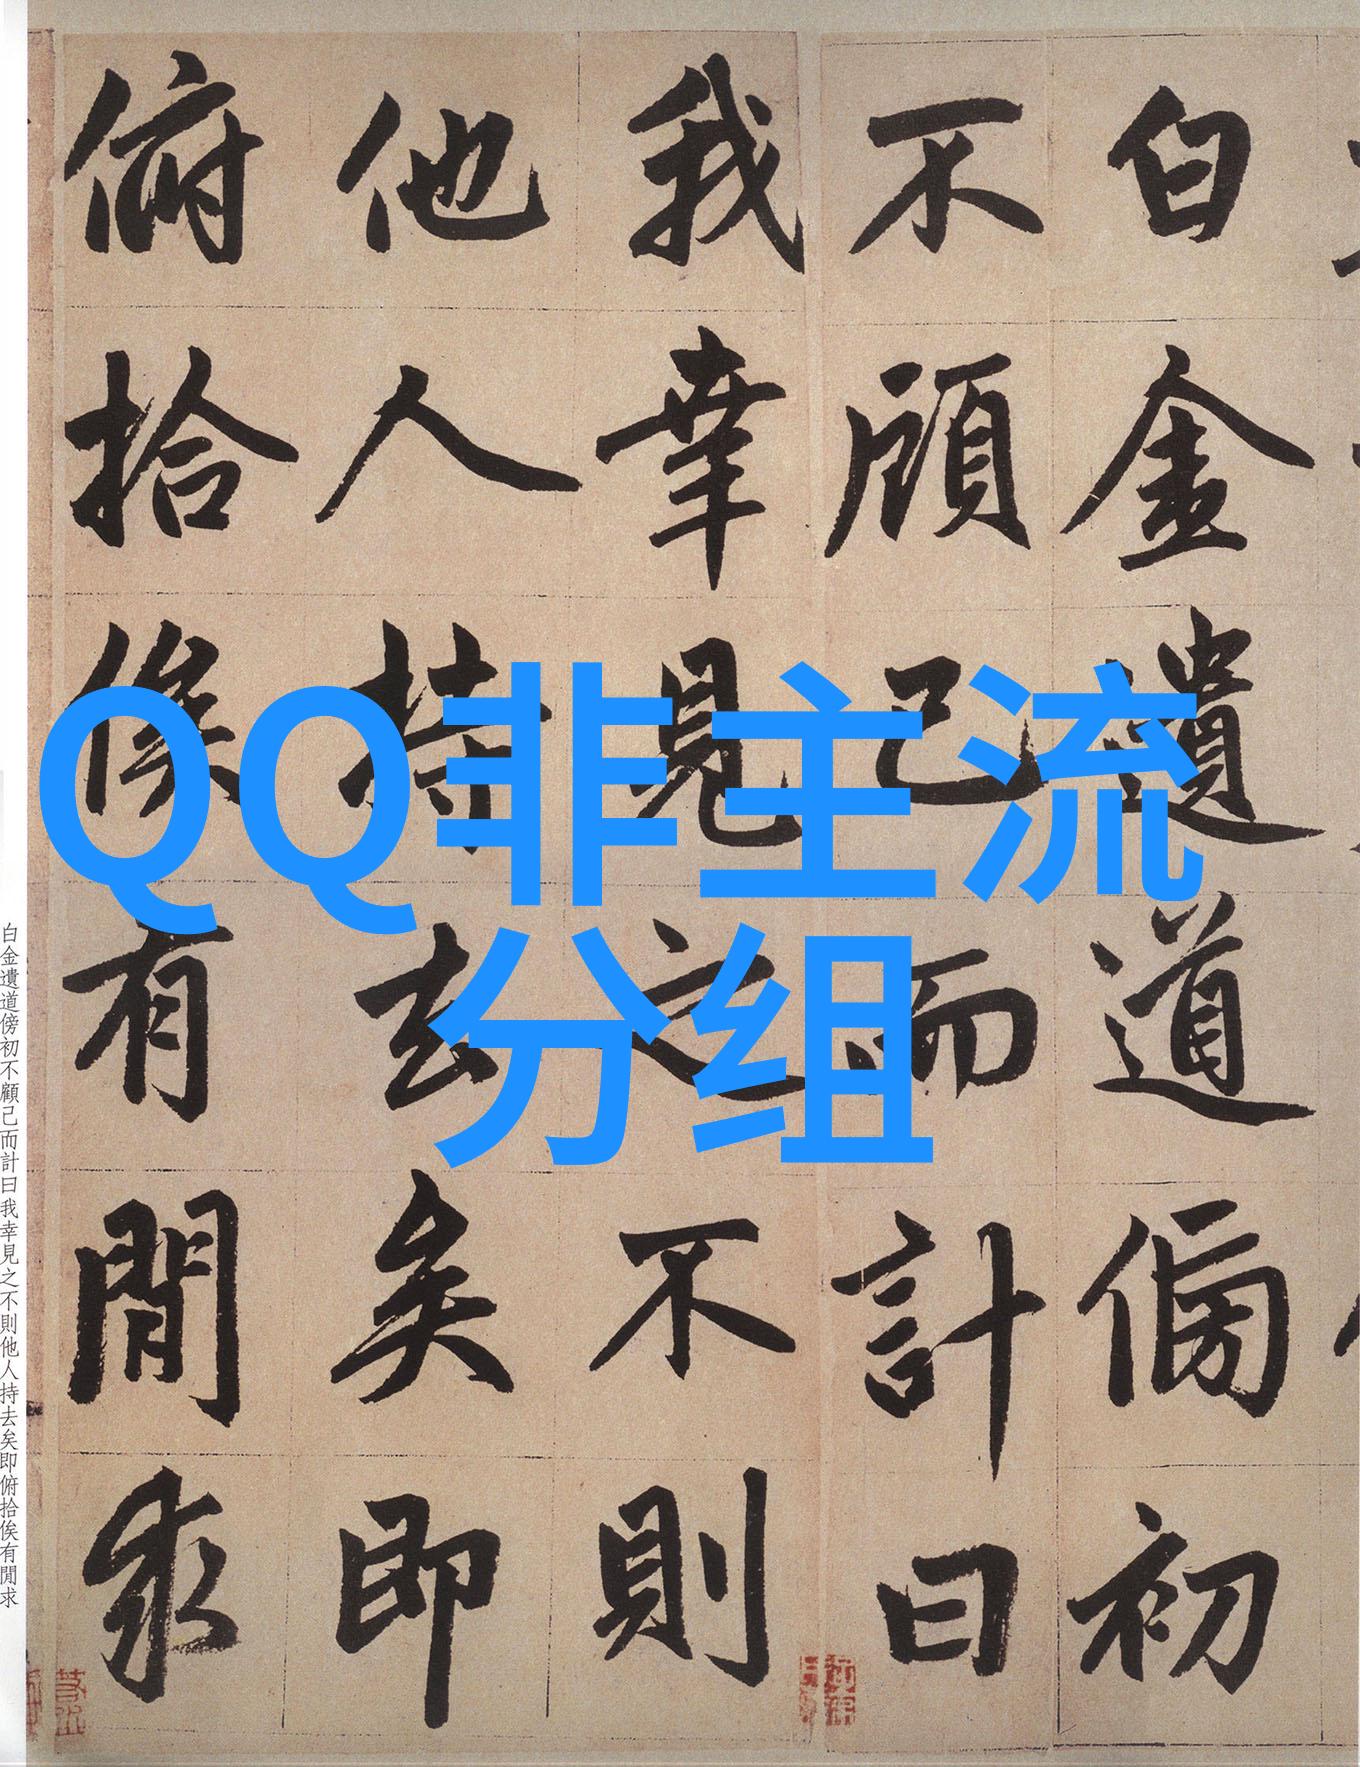 QQ非主流
分组
白金遺道傍初
不顧己而計曰
我幸見之不則
他人持去矣即
俯拾俟有閒求
白金遺道傍初不顧己而計曰我幸見之不則他人持去矣即俯拾俟有閒求